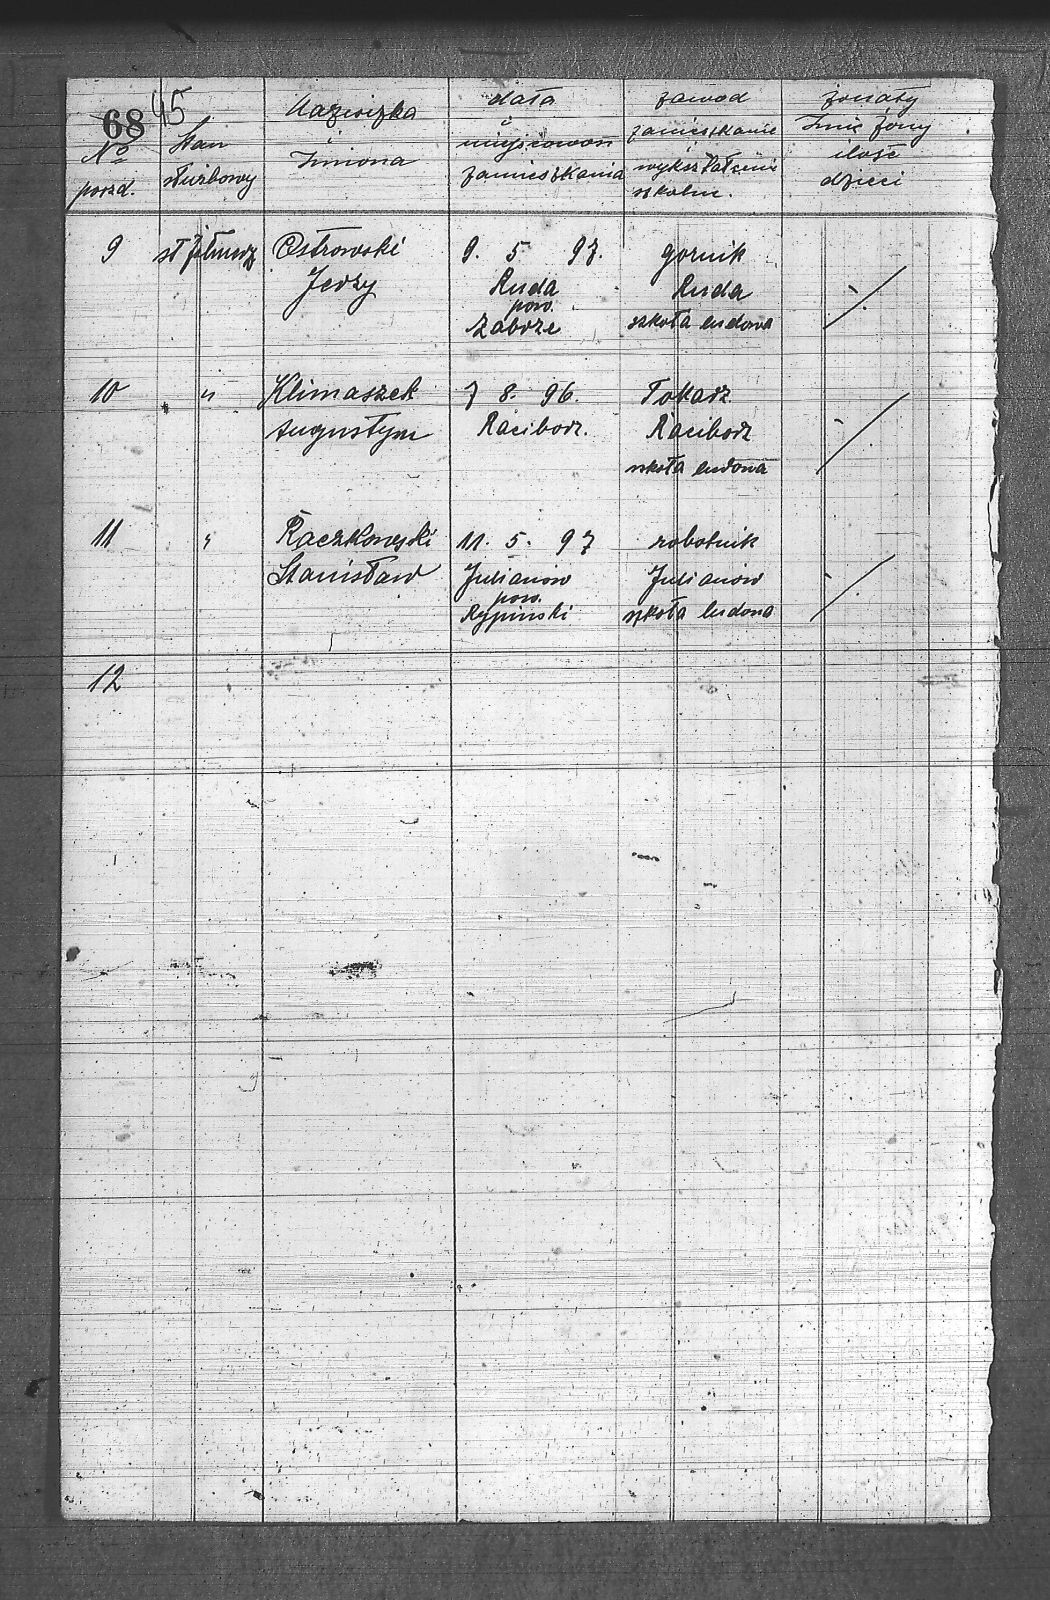 68 45
No porzd.
Stan służbowy
Nazwizka
Imiona
data
i
miejscowość
zamieszkania
zawód
zamieszkanie
wykształcenie
szkolne.
żonaty
Imie żony
ilość
dzieci
9 st Żołnierz Ostrowski 9. 5 97. górnik
Jerzy Ruda Ruda
pow.
Zabrze szkoła ludowa
10 " Klimaszek 7 8. 96. Tokarz
Augustyn Raciborz. Raciborz
szkoła ludowa
11 " Raczkowski 11. 5. 97 robotnik
Stanisław Julianów Julianów
pow.
Rypinski szkoła ludowa
12